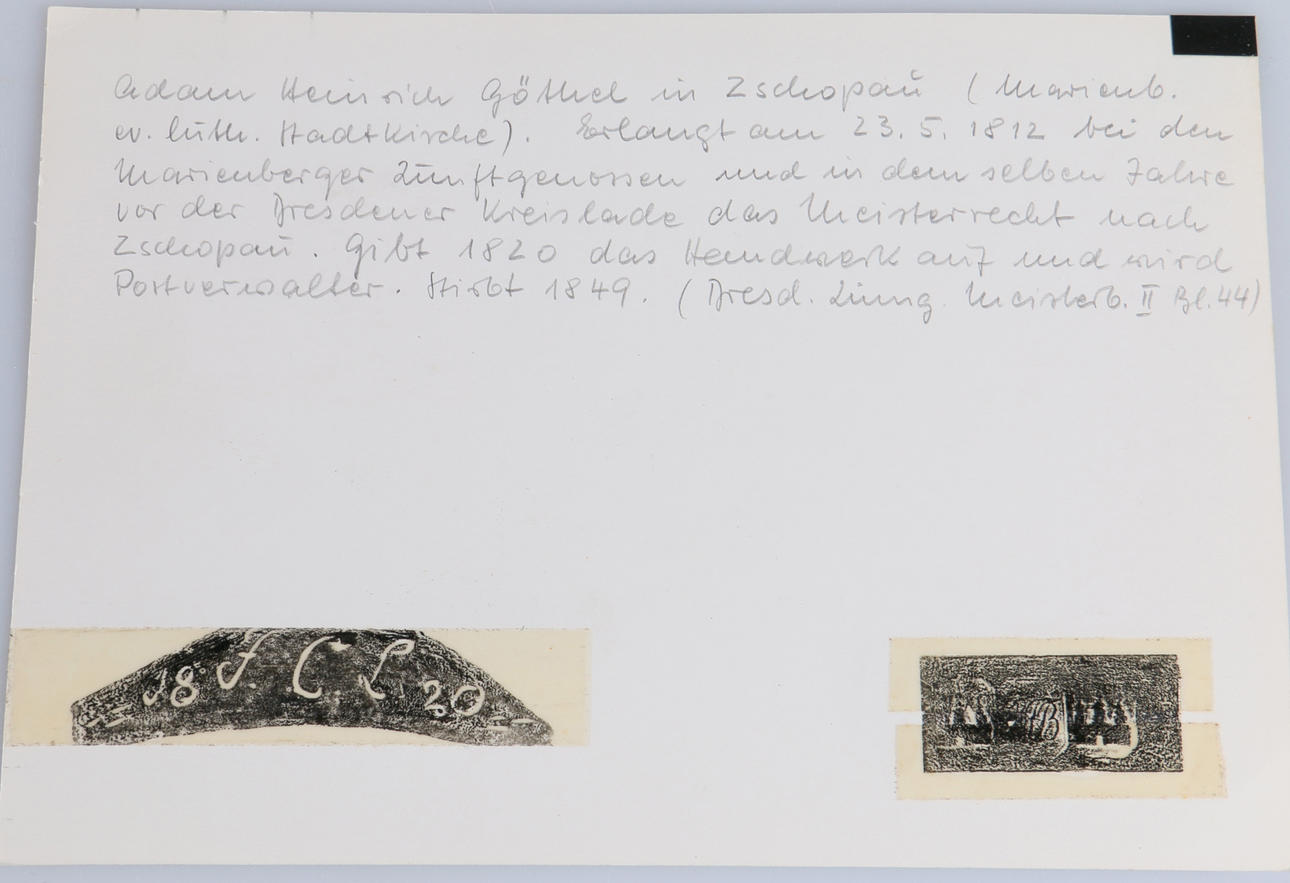 Adam Heinrich Göthel in Zschopau (Marienb.
ev. luth. Stadtkirche). Erlangt am 23. 5. 1812 bei den
Marienberger Zunftgenossen und in dem selben Jahre
vor der Dresdener Kreislade das Meisterrecht nach
Zschopau. Gibt 1820 das Handwerk auf und wird
Postverwalter. Stirbt 1849. (Dresd. Zinng. Meisterb. II Bl. 44)
18 J C L 20